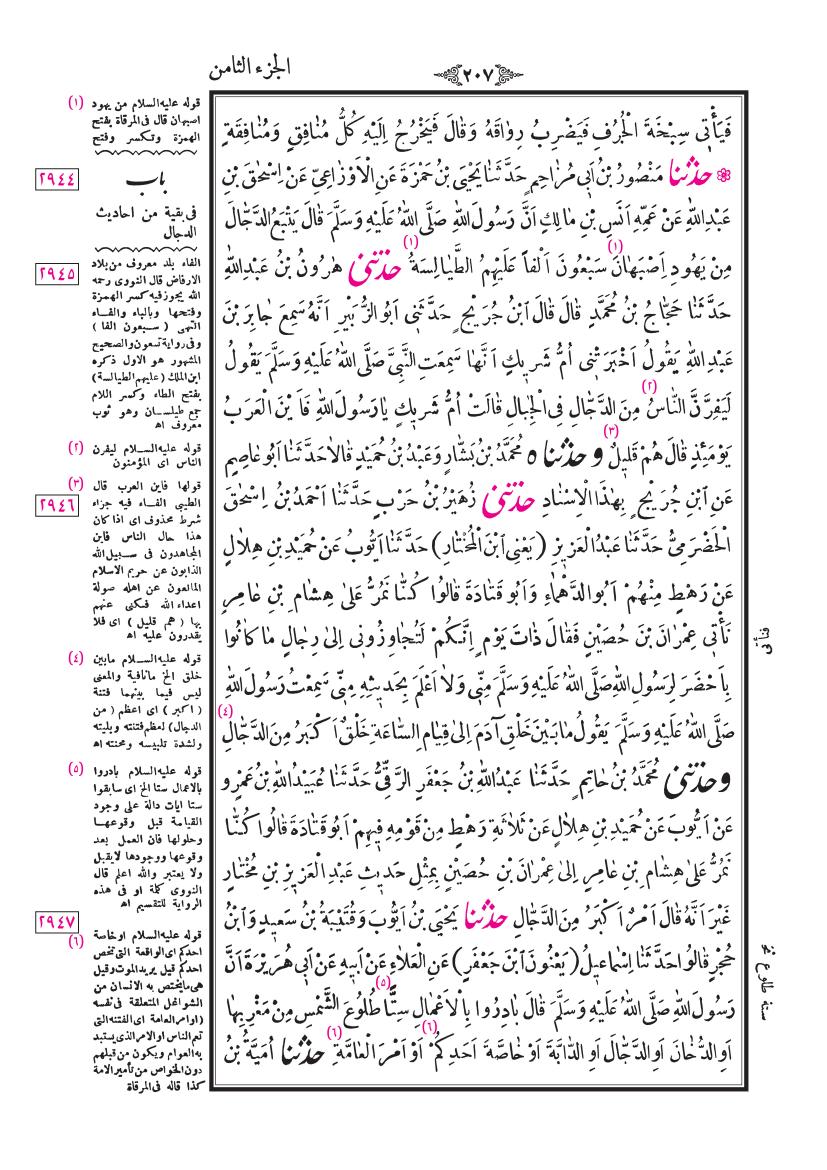 الجزء الثامن
﴿٢٠٧﴾
فَيَأْتِى سِبْخَةَ الْجُرُفِ فَيَضْرِبُ رِوَاقَهُ وَقَالَ فَيَخْرُجُ اِلَيْهِ كُلُّ مُنَافِقٍ وَمُنَافِقَةٍ
❁ حَدَّثَنَا مَنْصُورُ بْنُ اَبِى مُزَاحِمٍ حَدَّثَنَا يَحْيَى بْنُ حَمْزَةَ عَنِ الْاَوْزَاعِىِّ عَنْ اِسْحٰقَ بْنِ
عَبْدِ اللهِ عَنْ عَمِّهِ اَنَسِ بْنِ مَالِكٍ اَنَّ رَسُولَ اللهِ صَلَّى اللهُ عَلَيْهِ وَسَلَّمَ قَالَ يَتْبَعُ الدَّجَّالَ
مِنْ يَهُودِ اِصْبَهَانَ (١) سَبْعُونَ اَلْفاً عَلَيْهِمُ الطَّيَالِسَةُ (١) حَدَّثَنِى هٰرُونُ بْنُ عَبْدِ اللهِ
حَدَّثَنَا حَجَّاجُ بْنُ مُحَمَّدٍ قَالَ قَالَ ابْنُ جُرَيْجٍ حَدَّثَنِى اَبُو الزُّبَيْرِ اَنَّهُ سَمِعَ جَابِرَ بْنَ
عَبْدِ اللهِ يَقُولُ اَخْبَرَتْنِى اُمُّ شَرِيكٍ اَنَّهَا سَمِعَتِ النَّبِىَّ صَلَّى اللهُ عَلَيْهِ وَسَلَّمَ يَقُولُ
لَيَفِرَّنَّ النَّاسُ (٢) مِنَ الدَّجَّالِ فِى الْجِبَالِ قَالَتْ اُمُّ شَرِيكٍ يَا رَسُولَ اللهِ فَاَيْنَ الْعَرَبُ
يَوْمَئِذٍ قَالَ هُمْ قَلِيلٌ (٣) وَحَدَّثَنَاهُ مُحَمَّدُ بْنُ بَشَّارٍ وَعَبْدُ بْنُ حُمَيْدٍ قَالَا حَدَّثَنَا اَبُو عَاصِمٍ
عَنِ ابْنِ جُرَيْجٍ بِهٰذَا الْاِسْنَادِ حَدَّثَنِى زُهَيْرُ بْنُ حَرْبٍ حَدَّثَنَا اَحْمَدُ بْنُ اِسْحٰقَ
الْحَضْرَمِىُّ حَدَّثَنَا عَبْدُ الْعَزِيزِ (يَعْنِى ابْنَ الْمُخْتَارِ) حَدَّثَنَا اَيُّوبُ عَنْ حُمَيْدِ بْنِ هِلَالٍ
عَنْ رَهْطٍ مِنْهُمْ اَبُو الدَّهْمَاءِ وَاَبُو قَتَادَةَ قَالُوا كُنَّا نَمُرُّ عَلَى هِشَامِ بْنِ عَامِرٍ
نَأْتِى عِمْرَانَ بْنَ حُصَيْنٍ فَقَالَ ذَاتَ يَوْمٍ اِنَّكُمْ لَتُجَاوِزُونِى اِلَى رِجَالٍ مَا كَانُوا
بِاَحْضَرَ لِرَسُولِ اللهِ صَلَّى اللهُ عَلَيْهِ وَسَلَّمَ مِنِّى وَلَا اَعْلَمَ بِحَدِيثِهِ مِنِّى سَمِعْتُ رَسُولَ اللهِ
صَلَّى اللهُ عَلَيْهِ وَسَلَّمَ يَقُولُ مَا بَيْنَ خَلْقِ آدَمَ اِلَى قِيَامِ السَّاعَةِ خَلْقٌ اَكْبَرُ مِنَ الدَّجَّالِ (٤)
وَحَدَّثَنِى مُحَمَّدُ بْنُ حَاتِمٍ حَدَّثَنَا عَبْدُ اللهِ بْنُ جَعْفَرٍ الرَّقِّىُّ حَدَّثَنَا عُبَيْدُ اللهِ بْنُ عَمْرٍو
عَنْ اَيُّوبَ عَنْ حُمَيْدِ بْنِ هِلَالٍ عَنْ ثَلَاثَةِ رَهْطٍ مِنْ قَوْمِهِ فِيهِمْ اَبُو قَتَادَةَ قَالُوا كُنَّا
نَمُرُّ عَلَى هِشَامِ بْنِ عَامِرٍ اِلَى عِمْرَانَ بْنِ حُصَيْنٍ بِمِثْلِ حَدِيثِ عَبْدِ الْعَزِيزِ بْنِ مُخْتَارٍ
غَيْرَ اَنَّهُ قَالَ اَمْرٌ اَكْبَرُ مِنَ الدَّجَّالِ حَدَّثَنَا يَحْيَى بْنُ اَيُّوبَ وَقُتَيْبَةُ بْنُ سَعِيدٍ وَابْنُ
حُجْرٍ قَالُوا حَدَّثَنَا اِسْمَاعِيلُ (يَعْنُونَ ابْنَ جَعْفَرٍ) عَنِ الْعَلَاءِ عَنْ اَبِيهِ عَنْ اَبِى هُرَيْرَةَ اَنَّ
رَسُولَ اللهِ صَلَّى اللهُ عَلَيْهِ وَسَلَّمَ قَالَ بَادِرُوا بِالْاَعْمَالِ سِتًّا (٥) طُلُوعَ الشَّمْسِ مِنْ مَغْرِبِهَا
اَوِ الدُّخَانَ اَوِ الدَّجَّالَ اَوِ الدَّابَّةَ اَوْ خَاصَّةَ اَحَدِكُمْ (٦) اَوْ اَمْرَ الْعَامَّةِ (٦) حَدَّثَنَا اُمَيَّةُ بْنُ
(١) قوله عليه السلام من يهود
اصبهان قال فى المرقاة بفتح
الهمزة وتكسر وفتح
٢٩٤٤
باب
فى بقية من احاديث
الدجال
٢٩٤٥
الفاء بلد معروف من بلاد
الارفاض قال النووى رحمه
الله يجوز فيه كسر الهمزة
وفتحها وبالباء والفاء
انتهى (سبعون الفا)
وفى رواية تسعون والصحيح
المشهور هو الاول ذكره
ابن الملك (عليهم الطيالسة)
بفتح الطاء وكسر اللام
جمع طيلسان وهو ثوب
معروف اه
(٢) قوله عليه السلام ليفرن
الناس اى المؤمنون
(٣) قولها فاين العرب قال
٢٩٤٦
الطيبى الفاء فيه جزاء
شرط محذوف اى اذا كان
هذا حال الناس فاين
المجاهدون فى سبيل الله
الذابون عن حريم الاسلام
المانعون عن اهله صولة
اعداء الله فكنى عنهم
بها (هم قليل) اى فلا
يقدرون عليه اه
(٤) قوله عليه السلام مابين
خلق الخ مانافية والمعنى
ليس فيما بينهما فتنة
(اكبر) اى اعظم (من
الدجال) لعظم فتنته وبليته
ولشدة تلبيسه ومحنته اه
(٥) قوله عليه السلام بادروا
بالاعمال ستا الخ اى سابقوا
ستا ايات دالة على وجود
القيامة قبل وقوعها
وحلولها فان العمل بعد
وقوعها ووجودها لايقبل
ولا يعتبر والله اعلم قال
النووى كلمة او فى هذه
الرواية للتقسيم اه
٢٩٤٧
(٦) قوله عليه السلام اوخاصة
احدكم اى الواقعة التى تخص
احدكم قيل يريد الموت وقيل
هى مايختص به الانسان من
الشواغل المتعلقة فى نفسه
(اوامر العامة) اى الفتنه التى
تعم الناس او الامر الذى يستبد
به العوام ويكون من قبلهم
دون الخواص من تأمير الامة
كذا قاله فى المرقاة
فنأتى
ستة طلوع نخ